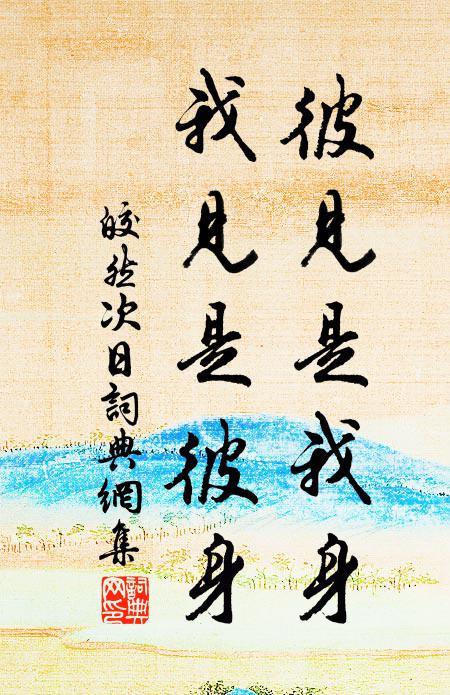 彼見是我身
我見是彼身
皎然次日詞典網集
詞典網印